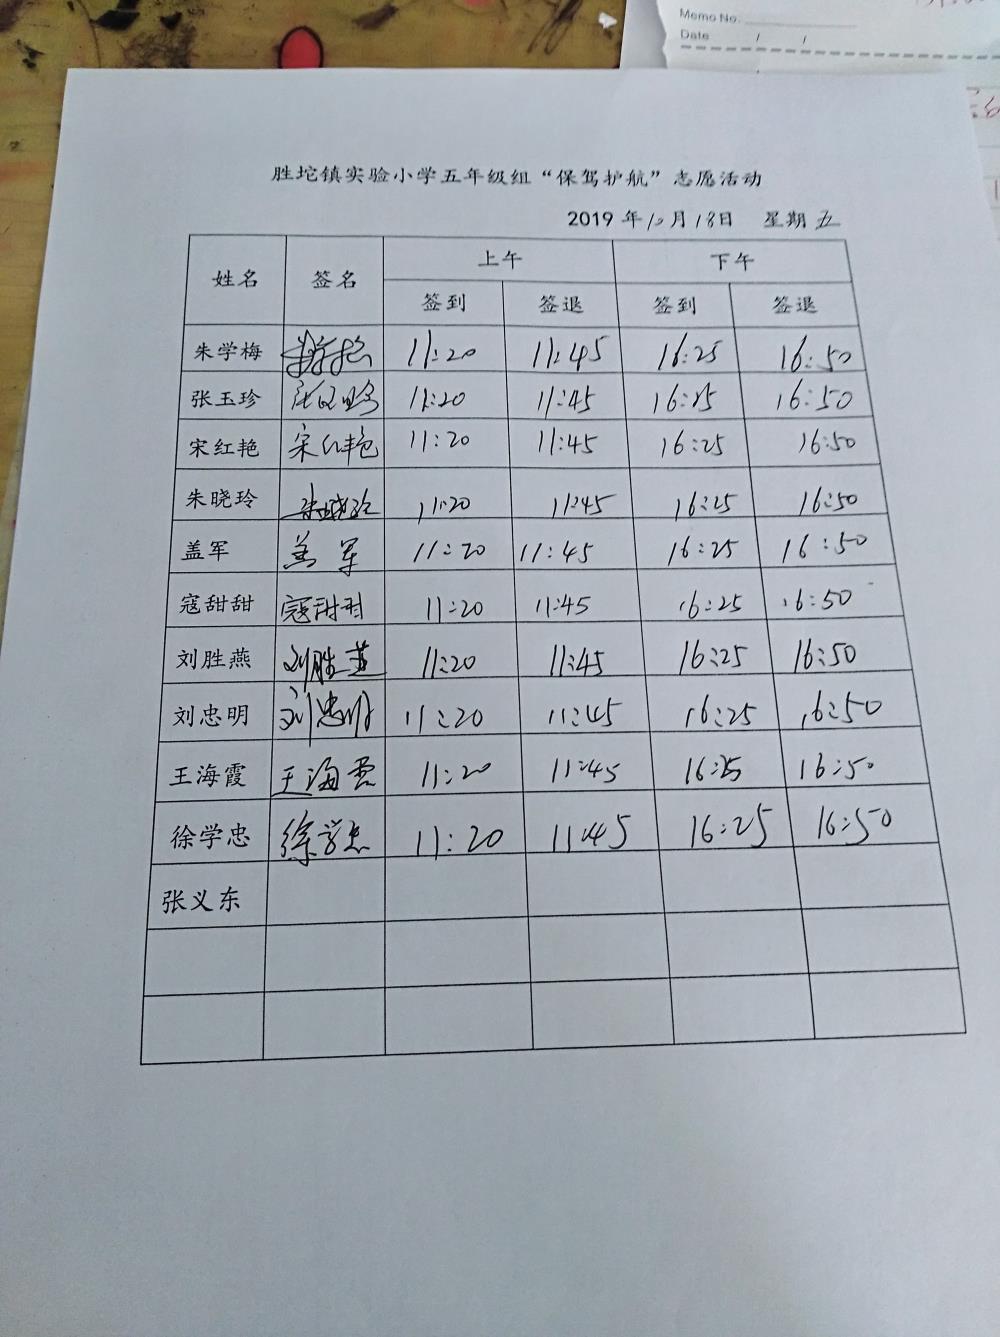 Memo No.
Date / /
胜坨镇实验小学五年级组“保驾护航”志愿活动
2019 年 10月 18日 星期 五
姓名 签名 上午 下午
签到 签退 签到 签退
朱学梅 11:20 11:45 16:25 16:50
张玉珍 张玉珍 11:20 11:45 16:25 16:50
宋红艳 宋红艳 11:20 11:45 16:25 16:50
朱晓玲 朱晓玲 11:20 11:45 16:25 16:50
盖军 盖军 11:20 11:45 16:25 16:50
寇甜甜 寇甜甜 11:20 11:45 16:25 16:50
刘胜燕 刘胜燕 11:20 11:45 16:25 16:50
刘忠明 刘忠明 11:20 11:45 16:25 16:50
王海霞 王海霞 11:20 11:45 16:25 16:50
徐学忠 徐学忠 11:20 11:45 16:25 16:50
张义东